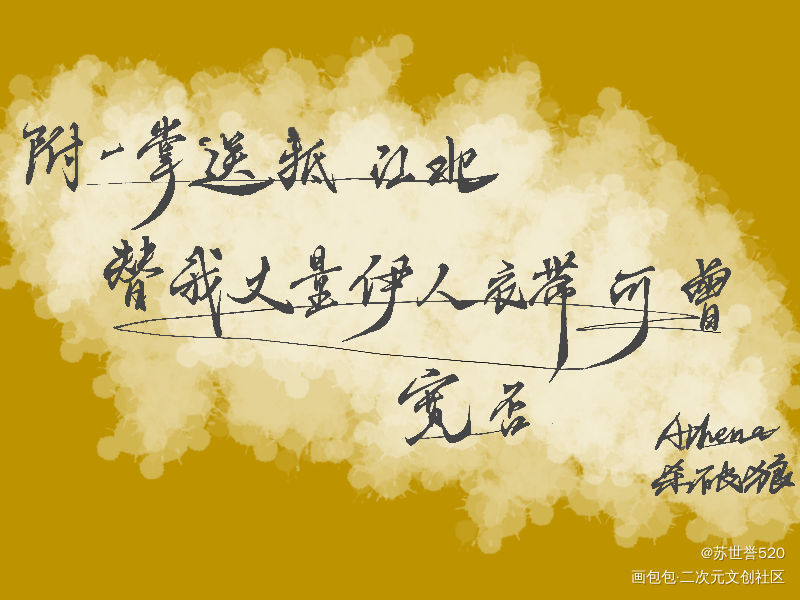 附一掌送抵江北
替我丈量伊人衣带可曾
宽否
Athena
杀破狼
@苏世誉520
画包包·二次元文创社区